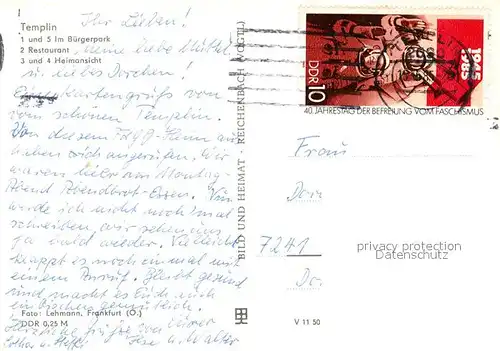 Templin
1 und 5 Im Bürgerpark
2 Restaurant
3 und 4 Heimansicht
Ihr Lieben!
meine liebe Mutti
u. liebes Dorchen!
Kartengrüße vom
vom schönen Templin.
Von diesem FDGB-Heim aus
haben sich angerufen. Wir
waren hier am Montag-
Abend Abendbrot-Essen. Nun
werde ich nicht noch 1 mal
schreiben, wir sehen uns
ja bald wieder. Vielleicht
klappt es noch einmal mit
einem Anruf. Bleibt gesund
und macht es Euch auch
ein bischen gemütlich.
Foto: Lehmann, Frankfurt (O.)
DDR 0,25 M
Herzliche Grüße von Eurer
Ilse u. Walter
BILD UND HEIMAT REICHENBACH (VOGTL)
V 11 50
DDR 10
1945
1985
40. JAHRESTAG DER BEFREIUNG VOM FASCHISMUS
Frau
7241
privacy protection
Datenschutz